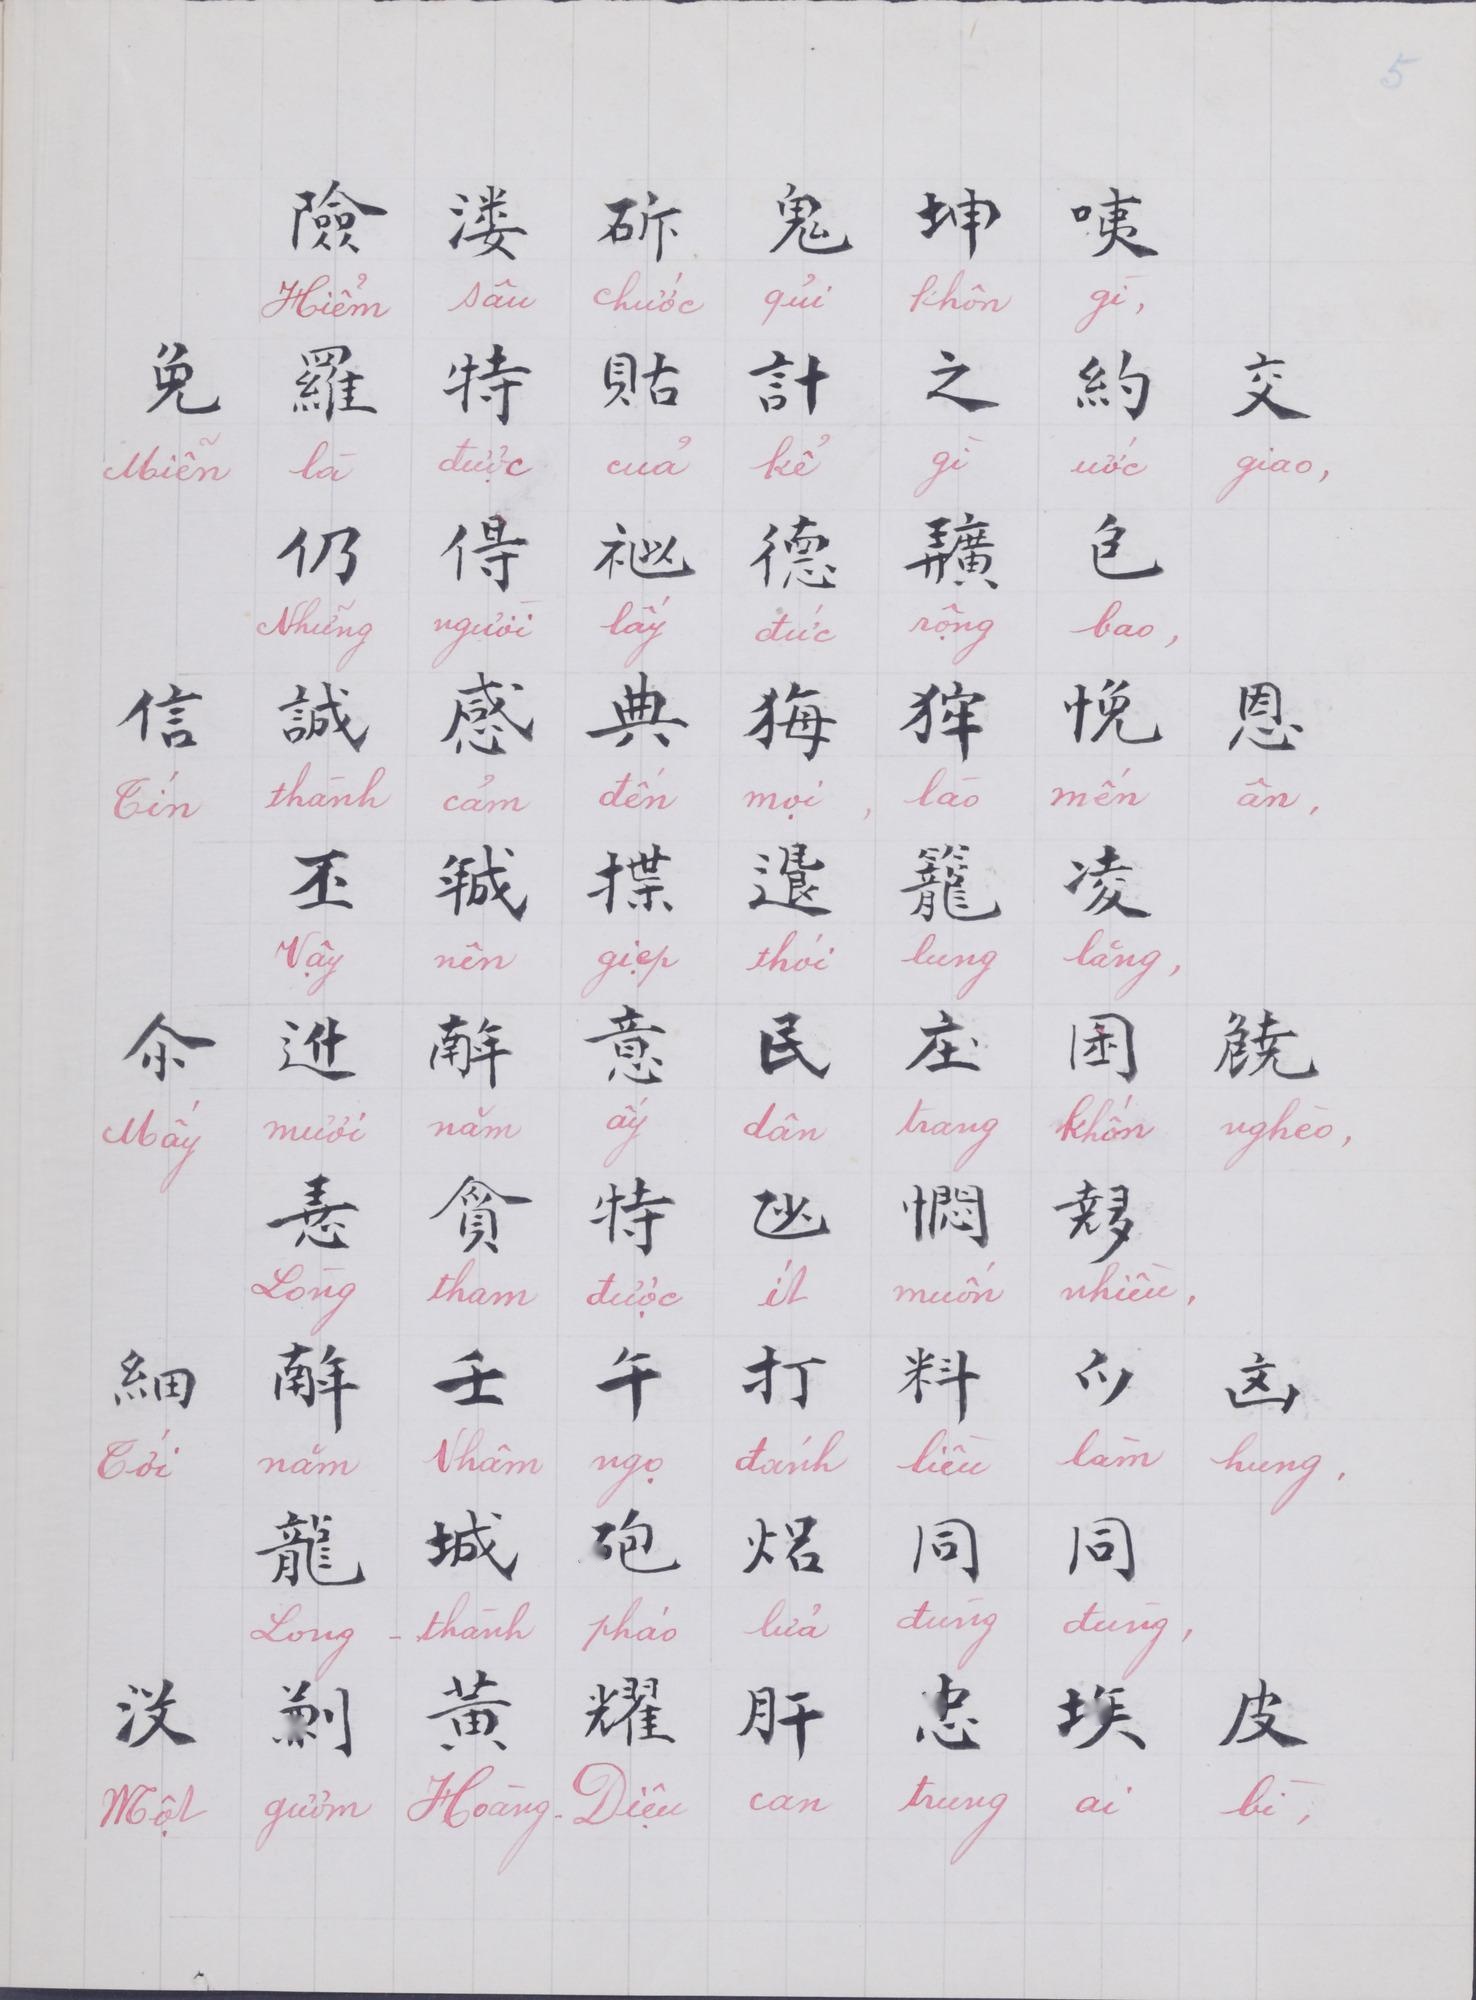 5
險溇斫鬼坤咦
Hiểm sâu chước qủi khôn gì,
免羅特貼計之約交
Miễn là được cuả kể gì ước giao,
仍得祂德𢌌包
Những người lấy đức rộng bao,
信誠感典㑄𤞪悗恩
Tín thành cảm đến mọi, lào mến ân,
丕𢧚揲退籠凌
Vậy nên giẹp thói lung lăng,
尒𨑮𢆥意民庄困𩛖
Mấy mươi năm ấy dân trang khốn nghèo,
𢚸貪特𠃣憫𡗉
Lòng tham được ít muốn nhiều,
細𢆥壬午打料𫜵凶
Tới năm Nhâm ngọ đánh liều làm hung,
龍城砲焒同同
Long - thành pháo lửa đùng đùng,
沒劎黃耀肝忠埃皮
Một gươm Hoàng-Diệu can trung ai bì,